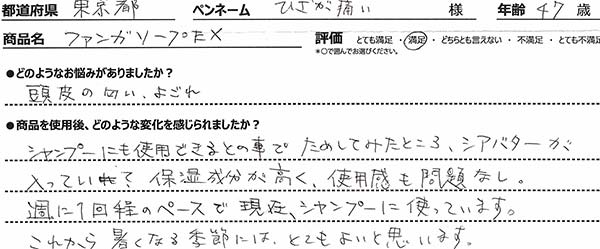 都道府県 東京都 ペンネーム ひざが痛い 様 年齢 47 歳
商品名 ファンガソープEX 評価 とても満足 ・ 満足 ・ どちらとも言えない ・ 不満足 ・ とても不満
*○で囲んでお選びください。
●どのようなお悩みがありましたか?
頭皮の匂い、よごれ
●商品を使用後、どのような変化を感じられましたか?
シャンプーにも使用できるとの事で ためしてみたところ、シアバターが
入っていて 保湿成分が高く、使用感も問題なし。
週に1回程のペースで現在、シャンプーに使っています。
これから暑くなる季節には、とてもよいと思います。